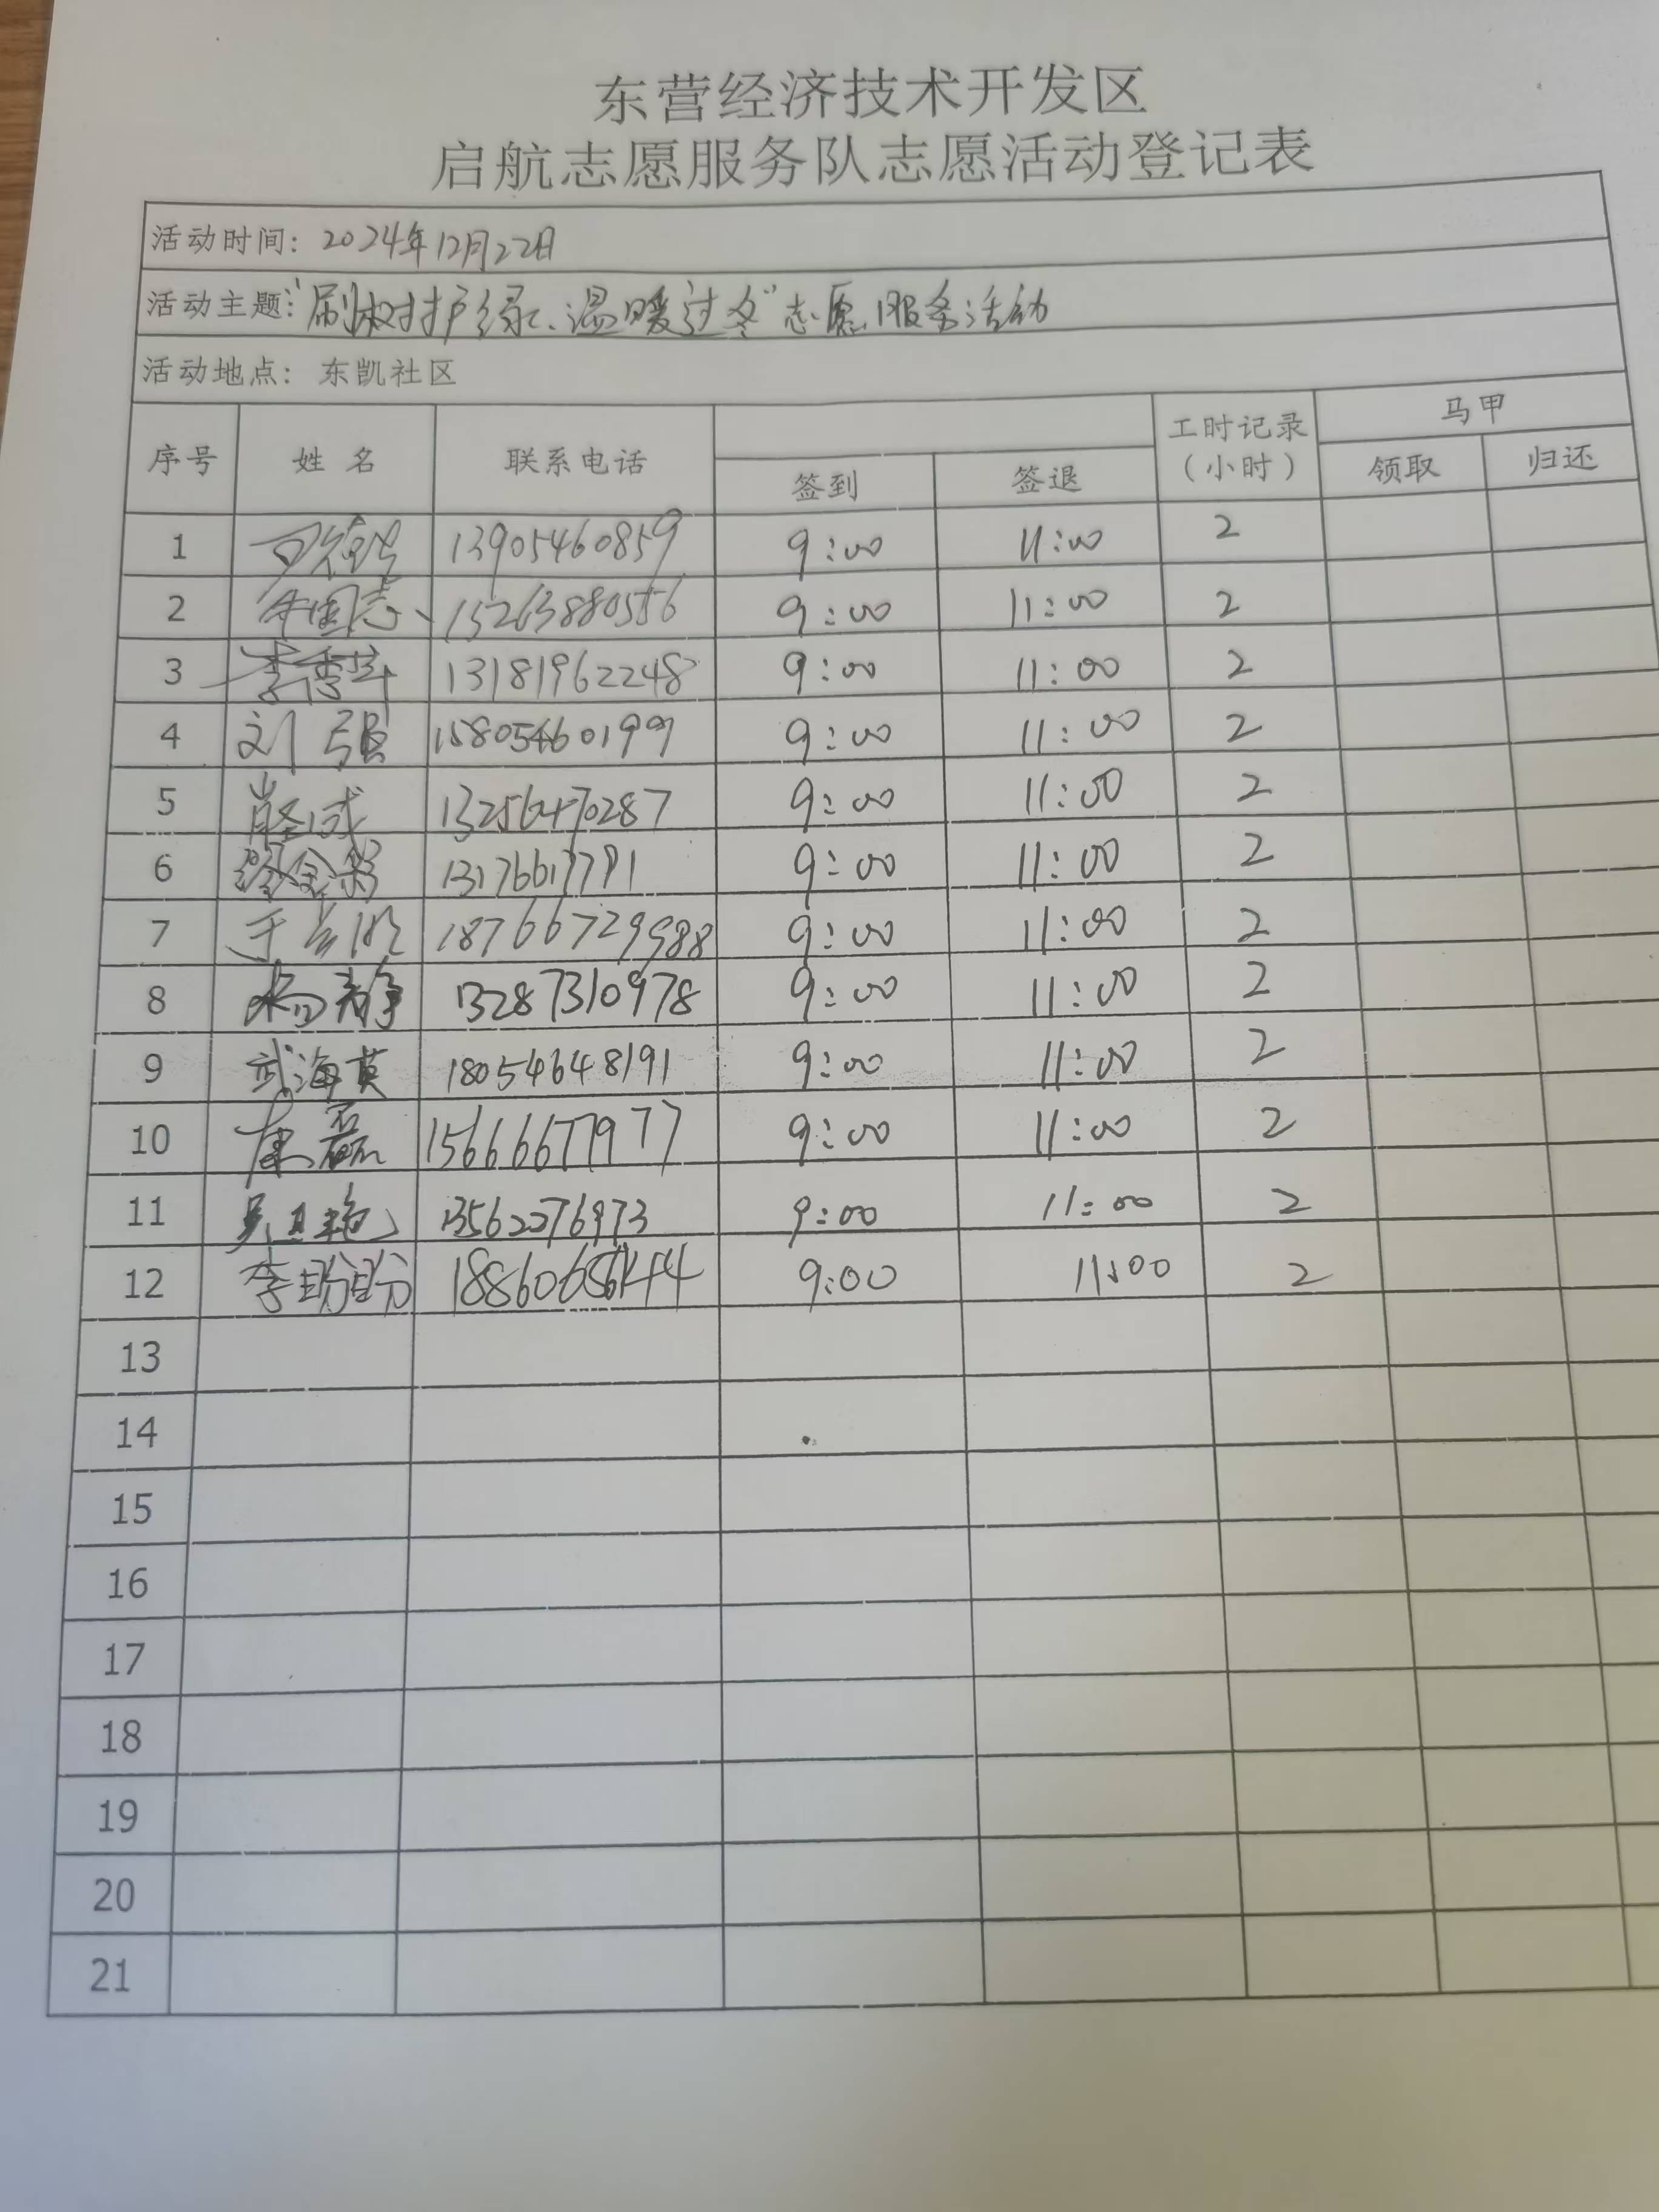 东营经济技术开发区
启航志愿服务队志愿活动登记表
活动时间：2024年12月22日
活动主题：“刷树护绿、温暖过冬”志愿服务活动
活动地点：东凯社区
序号 姓名 联系电话 签到 签退 工时记录（小时） 马甲 领取 归还
1 13905460859 9:00 11:00 2
2 牛国志 15263880556 9:00 11:00 2
3 李秀兰 13181962248 9:00 11:00 2
4 刘强 15805460199 9:00 11:00 2
5 13256470287 9:00 11:00 2
6 9:00 11:00 2
7 18766729988 9:00 11:00 2
8 杨静 13287310978 9:00 11:00 2
9 武海英 18054648191 9:00 11:00 2
10 康磊 15666677977 9:00 11:00 2
11 13562276973 9:00 11:00 2
12 李盼盼 9:00 11:00 2
13
14
15
16
17
18
19
20
21